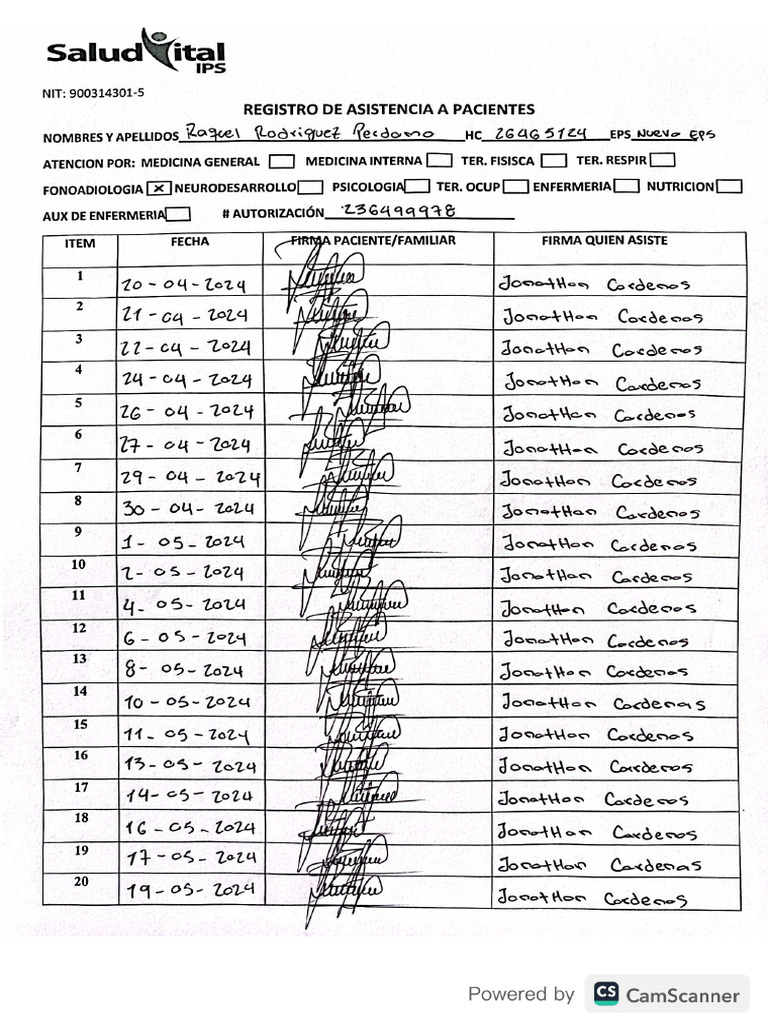 SaludVital
IPS
NIT: 900314301-5
REGISTRO DE ASISTENCIA A PACIENTES
NOMBRES Y APELLIDOS Raquel Rodriguez Perdomo HC 26465124 EPS Nueva EPS
ATENCION POR: MEDICINA GENERAL MEDICINA INTERNA TER. FISISCA TER. RESPIR
FONOADIOLOGIA x NEURODESARROLLO PSICOLOGIA TER. OCUP ENFERMERIA NUTRICION
AUX DE ENFERMERIA # AUTORIZACIÓN 236499978
ITEM FECHA FIRMA PACIENTE/FAMILIAR FIRMA QUIEN ASISTE
1 20-04-2024 Jonathan Cardenas
2 21-04-2024 Jonathan Cardenas
3 22-04-2024 Jonathan Cardenas
4 24-04-2024 Jonathan Cardenas
5 26-04-2024 Jonathan Cardenas
6 27-04-2024 Jonathan Cardenas
7 29-04-2024 Jonathan Cardenas
8 30-04-2024 Jonathan Cardenas
9 1-05-2024 Jonathan Cardenas
10 2-05-2024 Jonathan Cardenas
11 4-05-2024 Jonathan Cardenas
12 6-05-2024 Jonathan Cardenas
13 8-05-2024 Jonathan Cardenas
14 10-05-2024 Jonathan Cardenas
15 11-05-2024 Jonathan Cardenas
16 13-05-2024 Jonathan Cardenas
17 14-05-2024 Jonathan Cardenas
18 16-05-2024 Jonathan Cardenas
19 17-05-2024 Jonathan Cardenas
20 19-05-2024 Jonathan Cardenas
Powered by CS CamScanner